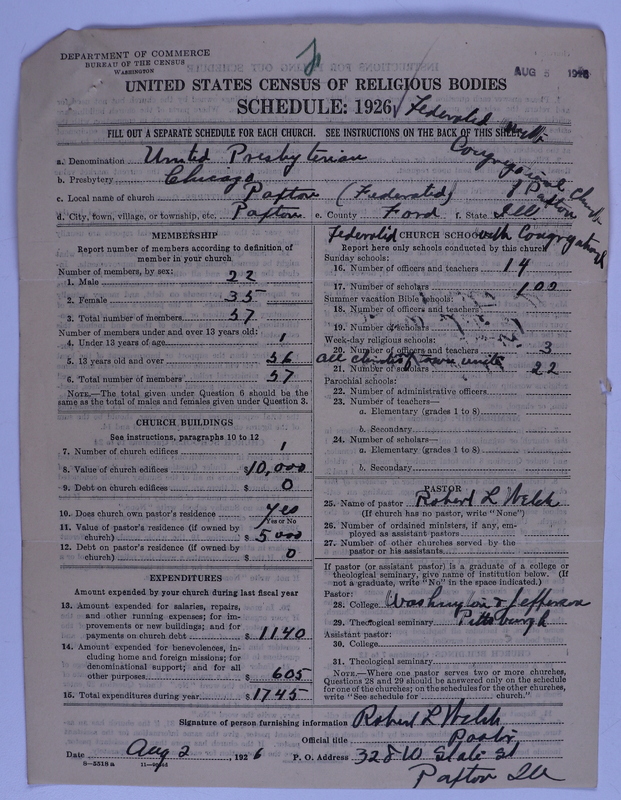 DEPARTMENT OF COMMERCE
BUREAU OF THE CENSUS
WASHINGTON
AUG 5 1926
UNITED STATES CENSUS OF RELIGIOUS BODIES
SCHEDULE: 1926
Federated with
Congregational Church
of Paxton
FILL OUT A SEPARATE SCHEDULE FOR EACH CHURCH. SEE INSTRUCTIONS ON THE BACK OF THIS SHEET
a. Denomination United Presbyterian
b. Presbytery Chicago
c. Local name of church Paxton (Federated)
d. City, town, village, or township, etc. Paxton e. County Ford f. State Ill
MEMBERSHIP
Report number of members according to definition of
member in your church
Number of members, by sex:
1. Male 22
2. Female 35
3. Total number of members 57
Number of members under and over 13 years old:
4. Under 13 years of age 1
5. 13 years old and over 56
6. Total number of members 57
NOTE.—The total given under Question 6 should be the
same as the total of males and females given under Question 3.
CHURCH BUILDINGS
See instructions, paragraphs 10 to 12
7. Number of church edifices 1
8. Value of church edifices $10,000
9. Debt on church edifices $ 0
10. Does church own pastor's residence yes
Yes or No
11. Value of pastor's residence (if owned by
church) $ 5000
12. Debt on pastor's residence (if owned by
church) $ 0
EXPENDITURES
Amount expended by your church during last fiscal year
13. Amount expended for salaries, repairs,
and other running expenses; for im-
provements or new buildings; and for
payments on church debt $ 1140
14. Amount expended for benevolences, in-
cluding home and foreign missions; for
denominational support; and for all
other purposes $ 605
15. Total expenditures during year $ 1745
Federated CHURCH SCHOOLS with Congregational
Report here only schools conducted by this church
Sunday schools:
16. Number of officers and teachers 14
17. Number of scholars 100
Summer vacation Bible schools:
18. Number of officers and teachers
19. Number of scholars
Week-day religious schools:
20. Number of officers and teachers 3
all churches of town unite
21. Number of scholars 22
Parochial schools:
22. Number of administrative officers
23. Number of teachers—
a. Elementary (grades 1 to 8)
b. Secondary
24. Number of scholars—
a. Elementary (grades 1 to 8)
b. Secondary
PASTOR
25. Name of pastor Robert L Welch
(If church has no pastor, write "None")
26. Number of ordained ministers, if any, em-
ployed as assistant pastors
27. Number of other churches served by the
pastor or his assistants
If pastor (or assistant pastor) is a graduate of a college or
theological seminary, give name of institution below. (If
not a graduate, write "No" in the space indicated.)
Pastor:
28. College Washington & Jefferson
29. Theological seminary Pittsburgh
Assistant pastor:
30. College
31. Theological seminary
NOTE.—Where one pastor serves two or more churches,
Questions 28 and 29 should be answered only on the schedule
for one of the churches; on the schedules for the other churches,
write "See schedule for church."
Signature of person furnishing information Robert L Welch
Official title Pastor
Date Aug 2, 1926 P. O. Address 328 W State St
Paxton Ill
8-5518a